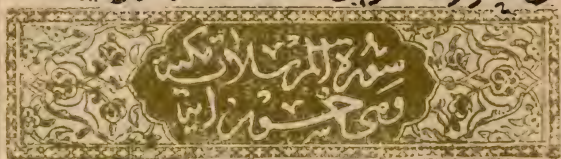 سورة المرسلات مكية
وهي خمسون آية